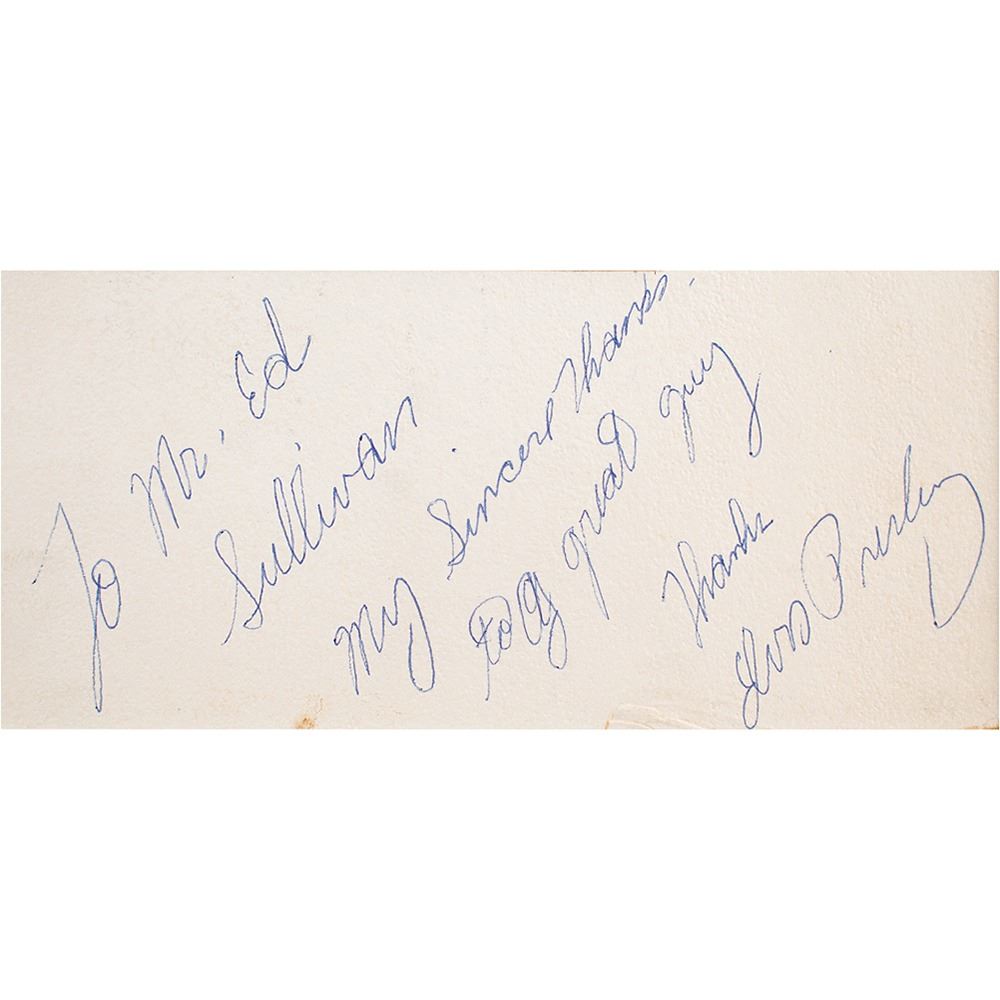 To Mr. Ed
Sullivan
My Sincere Thanks.
to a great guy
Thanks
Elvis Presley